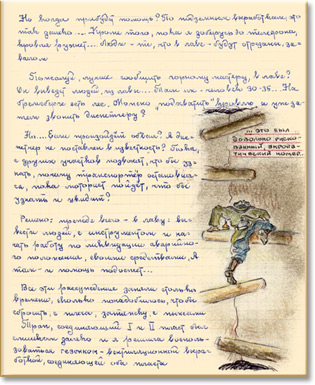 Но когда прибудут помощь? По подземным выработкам, это
так далеко.... Кроме того, пока я доберусь до телефона,
кровля рухнет... люди - те, что в лаве - будут отрезаны, за-
валом
Пожалуй, лучше сообщить горному мастеру, в лаве?
Он выведет людей, из лавы... Там их - человек 30-35... На
бремсберге есть лес. Можно „подхватить" кровлю и уж за-
тем звонить диспетчеру?
Ну.... если произойдёт обвал? А дис-
петчер не поставлен в известность? Лава,
с других участков позвонят, что бы уз-
нать, почему транспортёр остановил-
ся, пока моторист пойдёт, что бы
узнать и увидит?
Решено: прежде всего - в лаву: вы-
вести людей, с инструментом и на-
чать работу по ликвидации аварийно-
го положения, своими средствами. А
там - и помощь подоспеет...
Все эти рассуждения заняли столько
времени, сколько понадобилось, чтобы
сбросить, с плеча, затяжку, с вынесен
Уран, соединяющий I и II пласт был
слишком далеко и я решила восполь-
зоваться гезенком - вентиляционной выра-
боткой, соединяющей оба пласта
... это был
довольно риско-
ванный, акроба-
тический номер...